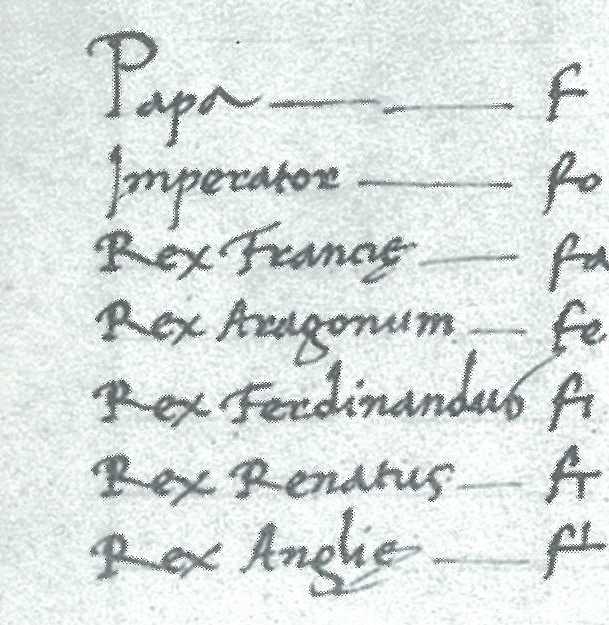 Papa — f
Imperator — fo
Rex Francię — fa
Rex Aragonum — fe
Rex Ferdinandus fi
Rex Renatus — fr
Rex Anglię —